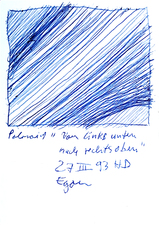 " Von links unten
nach rechts oben"
27 III 93 HD
Egon